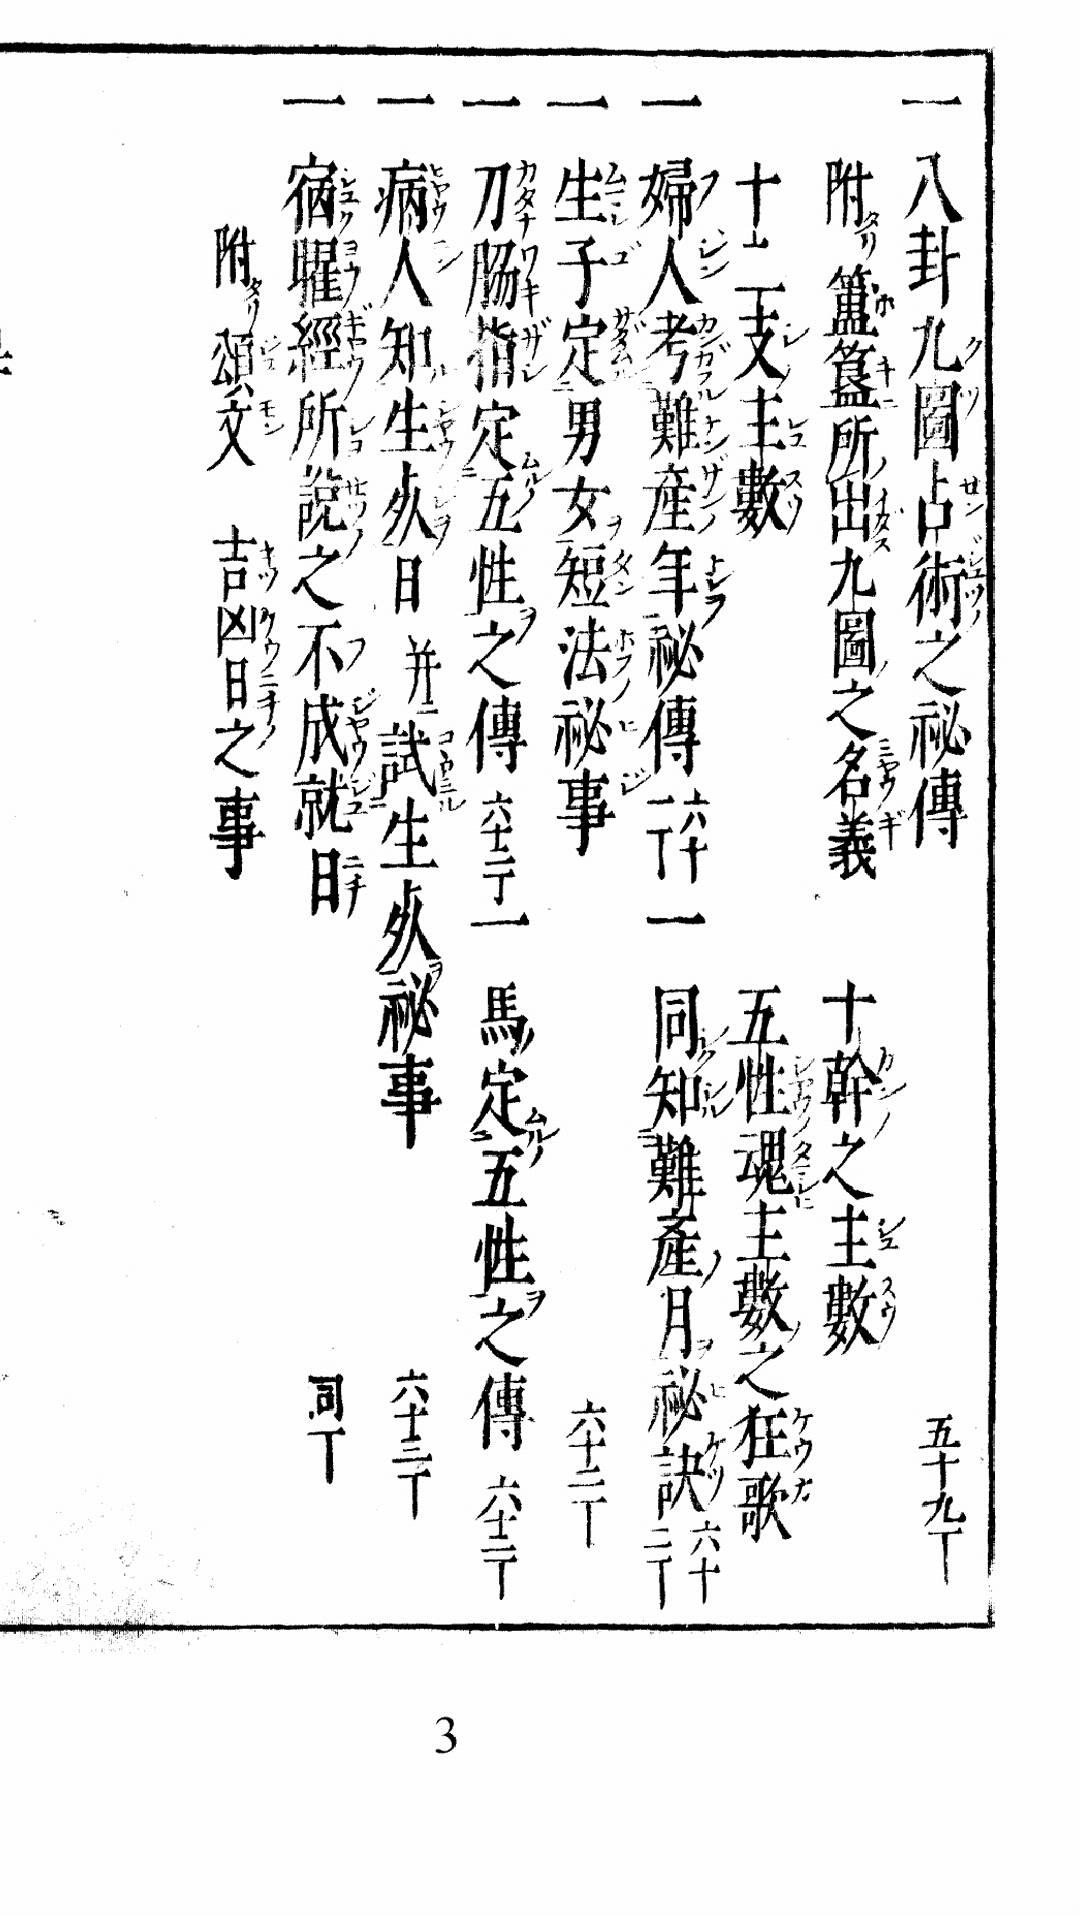 一 八卦九圖占術之祕傳 五十九丁
附 簠簋所出九圖之名義 十幹之主數
十二支主數 五性魂主數之狂歌
一 婦人考難産年祕傳 六十一丁 一 同知難産月祕訣 六十二丁
一 生子定男女短法祕事 六十二丁
一 刀脇指定五性之傳 六十二丁 一 馬定五性之傳 六十二丁
一 病人知生死日 并ニ試生死祕事 六十三丁
一 宿曜經所説之不成就日 同丁
附 頌文 吉凶日之事
3